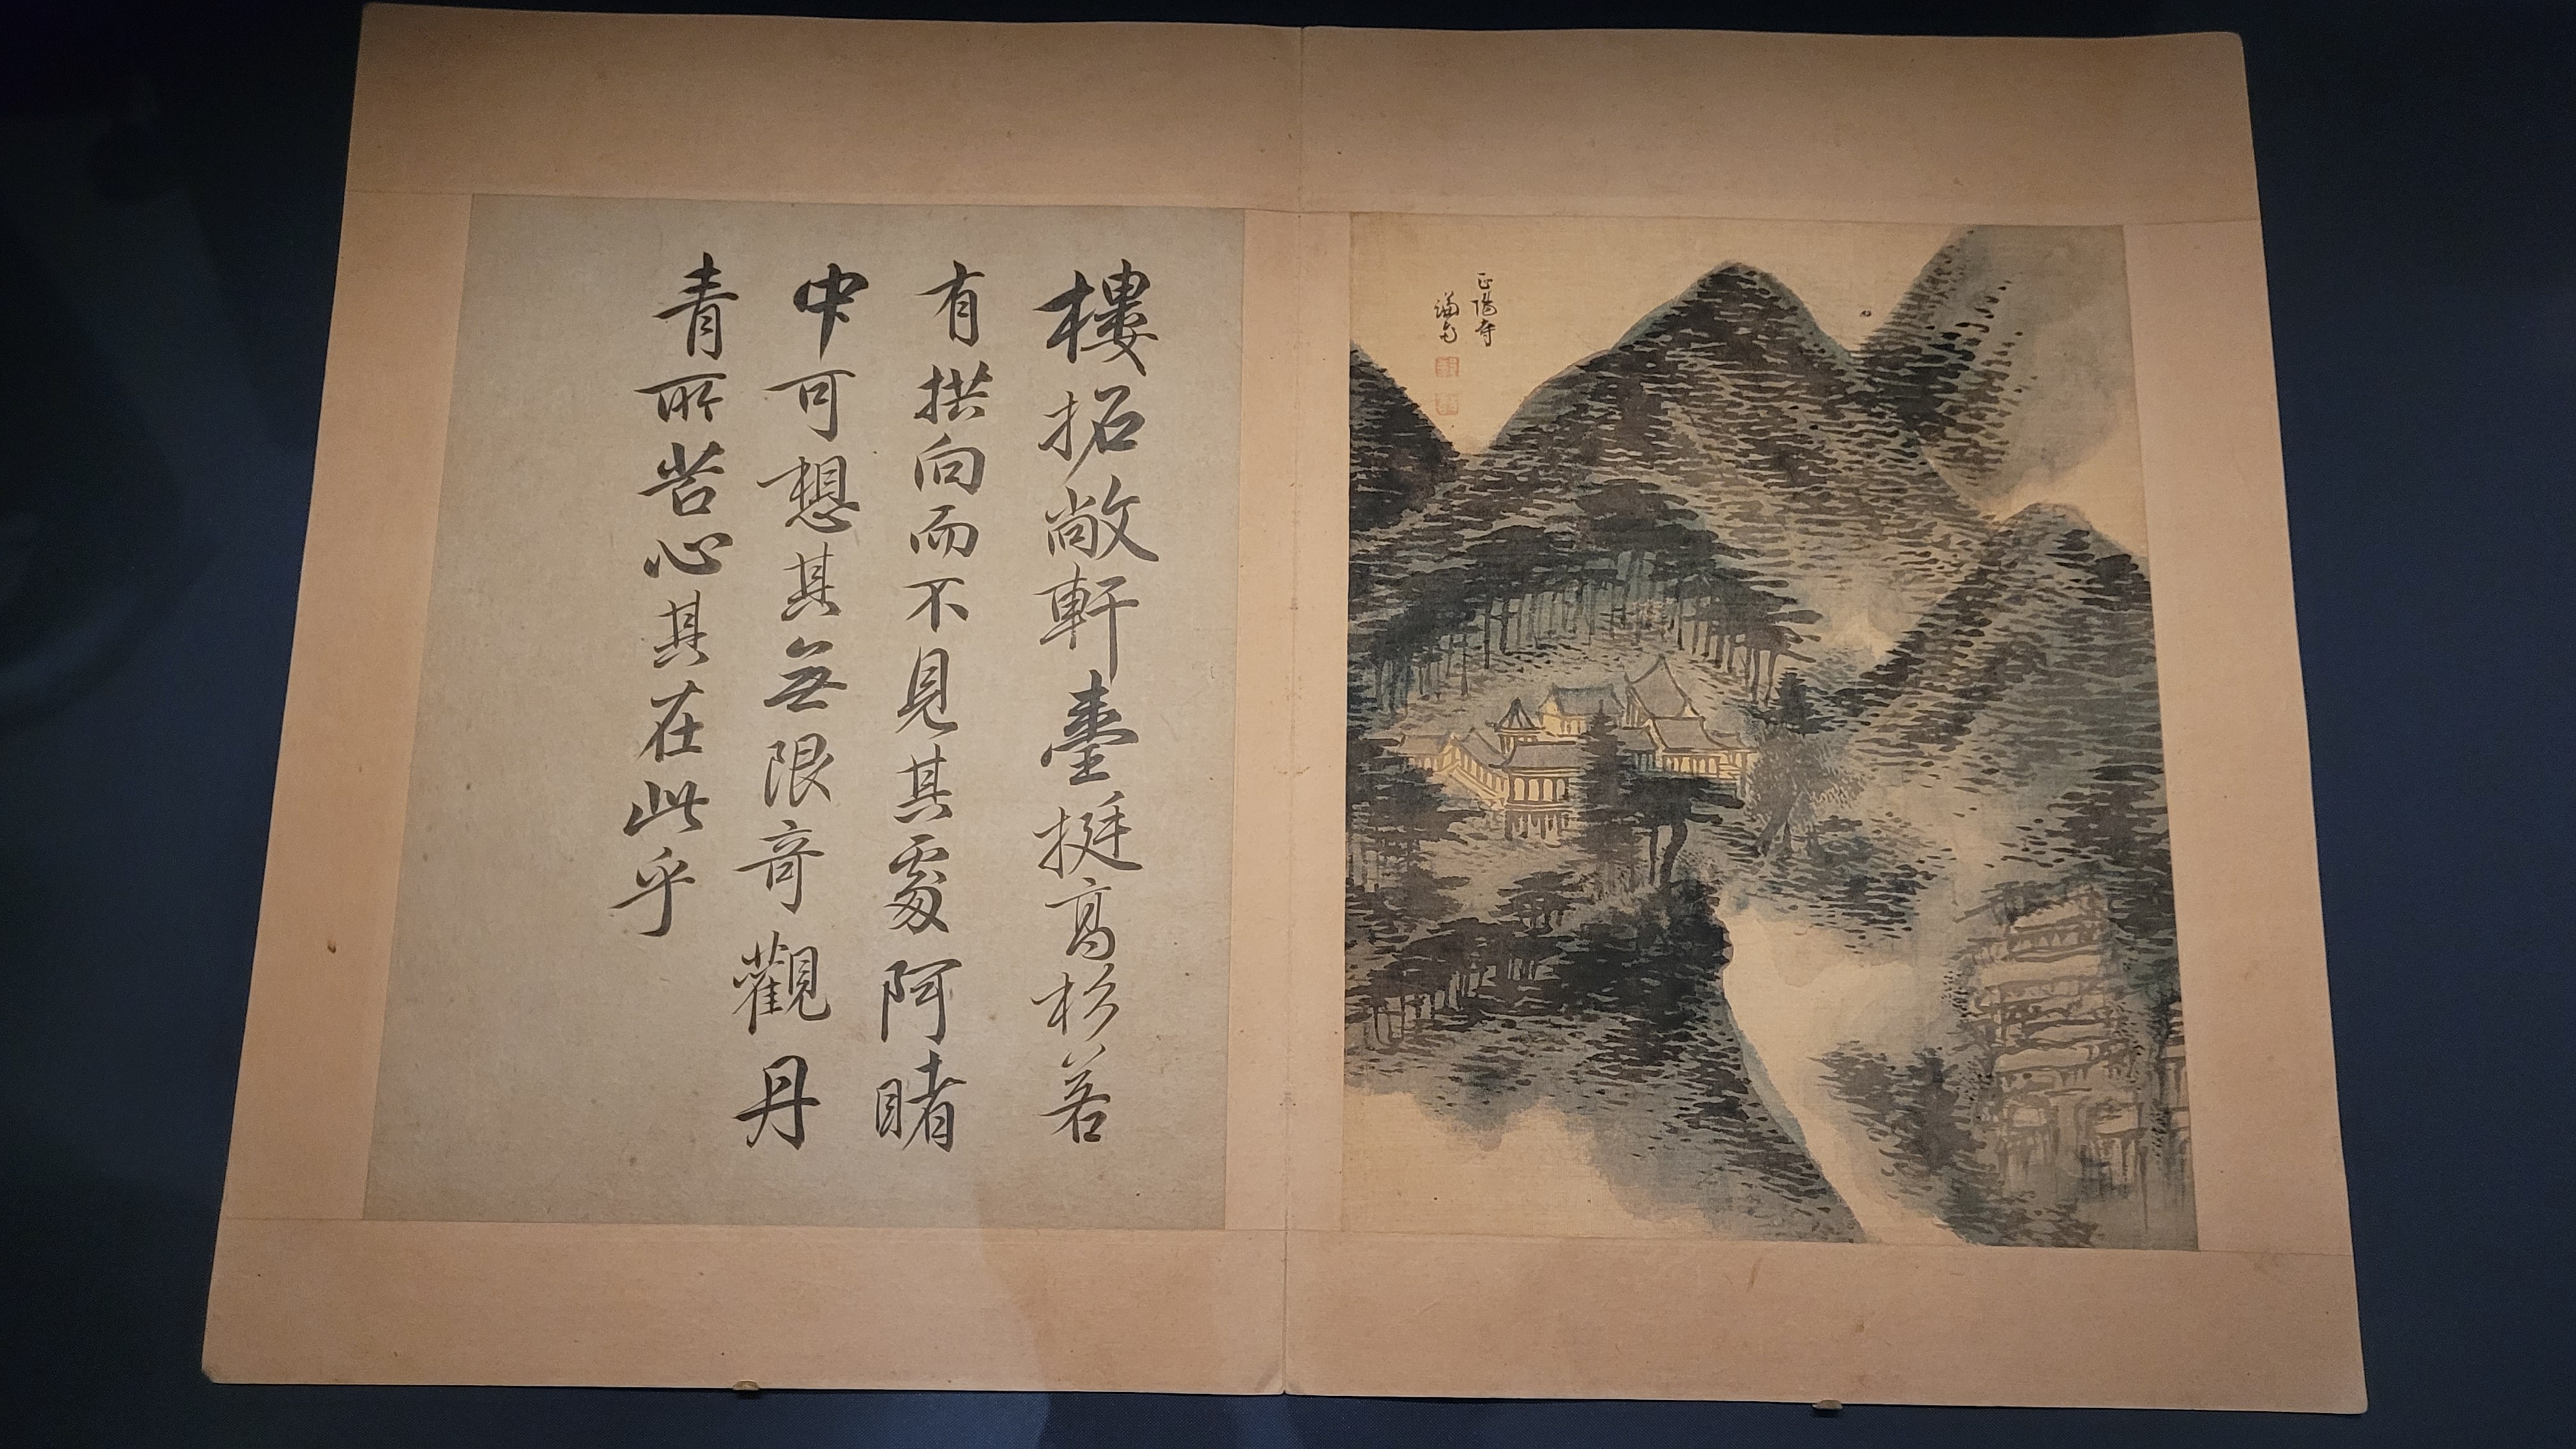 樓拓敞軒臺挺高杉若
有拱向而不見其處阿睹
中可想其無限奇觀丹
青所苦心其在此乎
正陽寺
謙齋